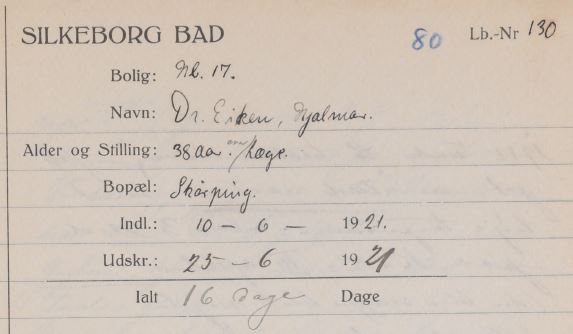 SILKEBORG BAD 80 Lb.-Nr 130
Bolig: Nb. 17.
Navn: Dr. Eiken, Hjalmar.
Alder og Stilling: 38 aar. Læge.
Bopæl: Skørping.
Indl.: 10 - 6 - 1921.
Udskr.: 25 - 6 1921
Ialt 16 dage Dage